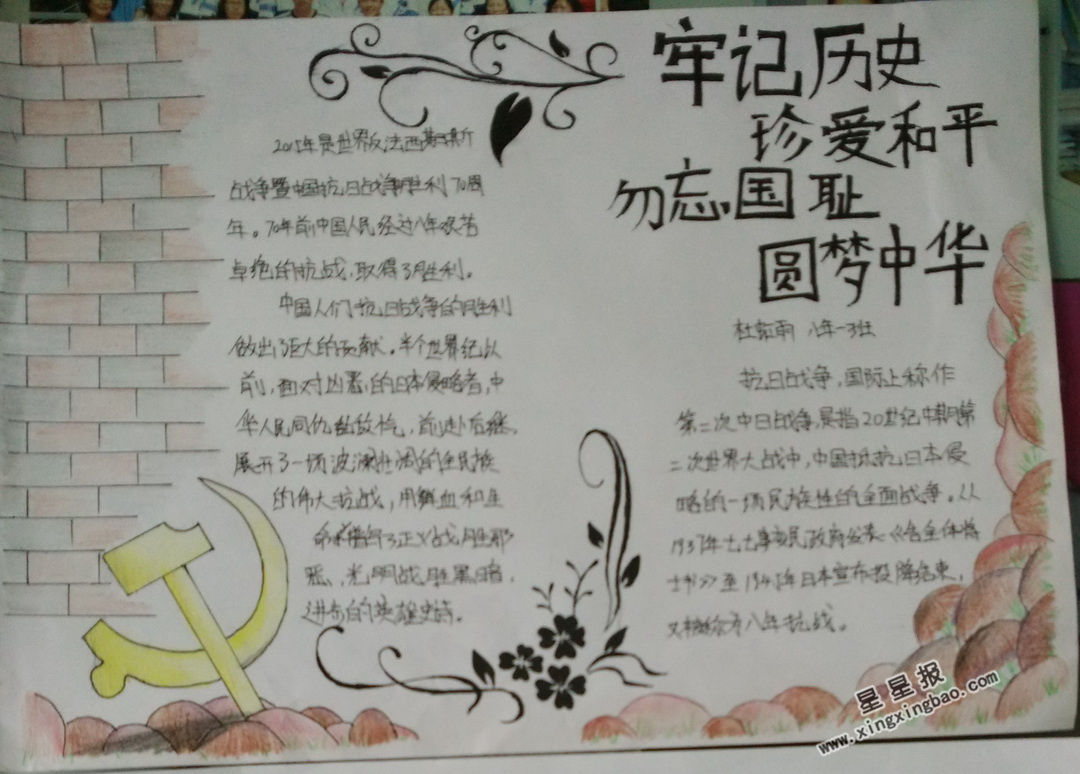 牢记历史
珍爱和平
勿忘国耻
圆梦中华
八年一班
2015年是世界反法西斯
战争暨中国抗日战争胜利70周
年。70年前中国人民经过八年艰苦
卓绝的抗战,取得了胜利。
中国人们抗日战争的胜利
做出了巨大的贡献。半个世纪以
前,面对凶恶的日本侵略者,中
华人民同仇敌忾,前赴后继,
展开了一场波澜壮阔的全民族
的伟大抗战,用鲜血和生
命谱写了正义战胜邪
恶、光明战胜黑暗,
进步的英雄史诗。
抗日战争,国际上称作
第二次中日战争,是指20世纪中期第
二次世界大战中,中国抵抗日本侵
略的一场民族性的全面战争。从
1937年七七事变民政府发表《告全体将
士书》至1945年日本宣布投降结束,
又被称为八年抗战。
星星报
www.xingxingbao.com